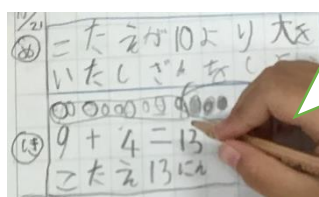 10/21
め こたえが10より大き
いたしざん
しき 9+4=13
こたえ13にん